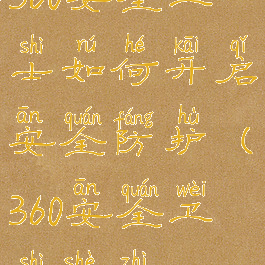 shì rú hé kāi qǐ
士如何开启
ān quán fáng hù
安全防护(
ān quán wèi
360安全卫
shì shè zhì